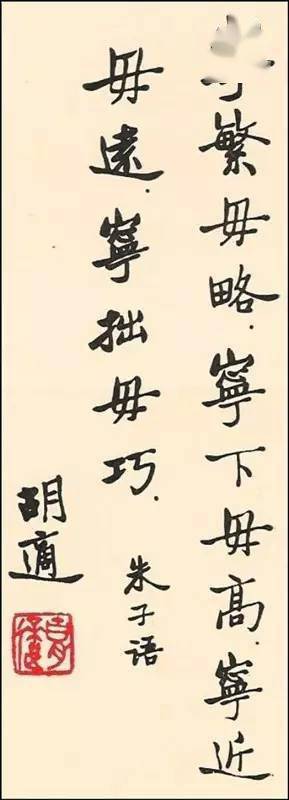 繁毋略.寧下毋高.寧近
毋遠.寧拙毋巧.
朱子語
胡適